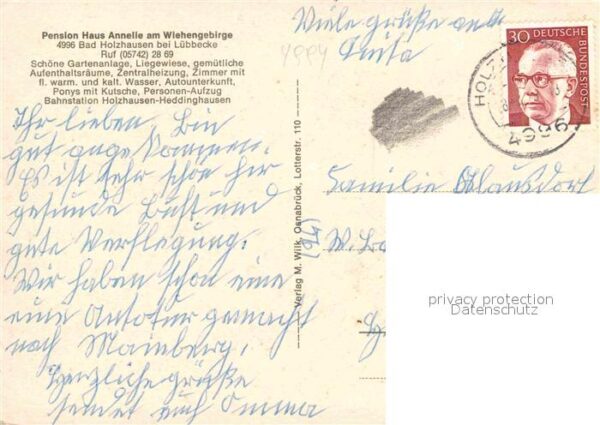 Pension Haus Annelie am Wiehengebirge
4996 Bad Holzhausen bei Lübbecke
Ruf (05742) 28 69
Schöne Gartenanlage, Liegewiese, gemütliche
Aufenthaltsräume, Zentralheizung, Zimmer mit
fl. warm. und kalt. Wasser, Autounterkunft,
Ponys mit Kutsche, Personen-Aufzug
Bahnstation Holzhausen-Heddinghausen
Ihr lieben, Bin
gut angekommen.
Es ist sehr schön hir
gesunde Luft und
gute Verflegung.
Wir haben schon eine
eine Autotur gemacht
nach
Herzliche grüße
sendet euch Omma
Verlag M. Wilk, Osnabrück, Lotterstr. 110
Viele grüße an
30
DEUTSCHE BUNDESPOST
HOLZ
4996
Familie
W.
privacy protection
Datenschutz